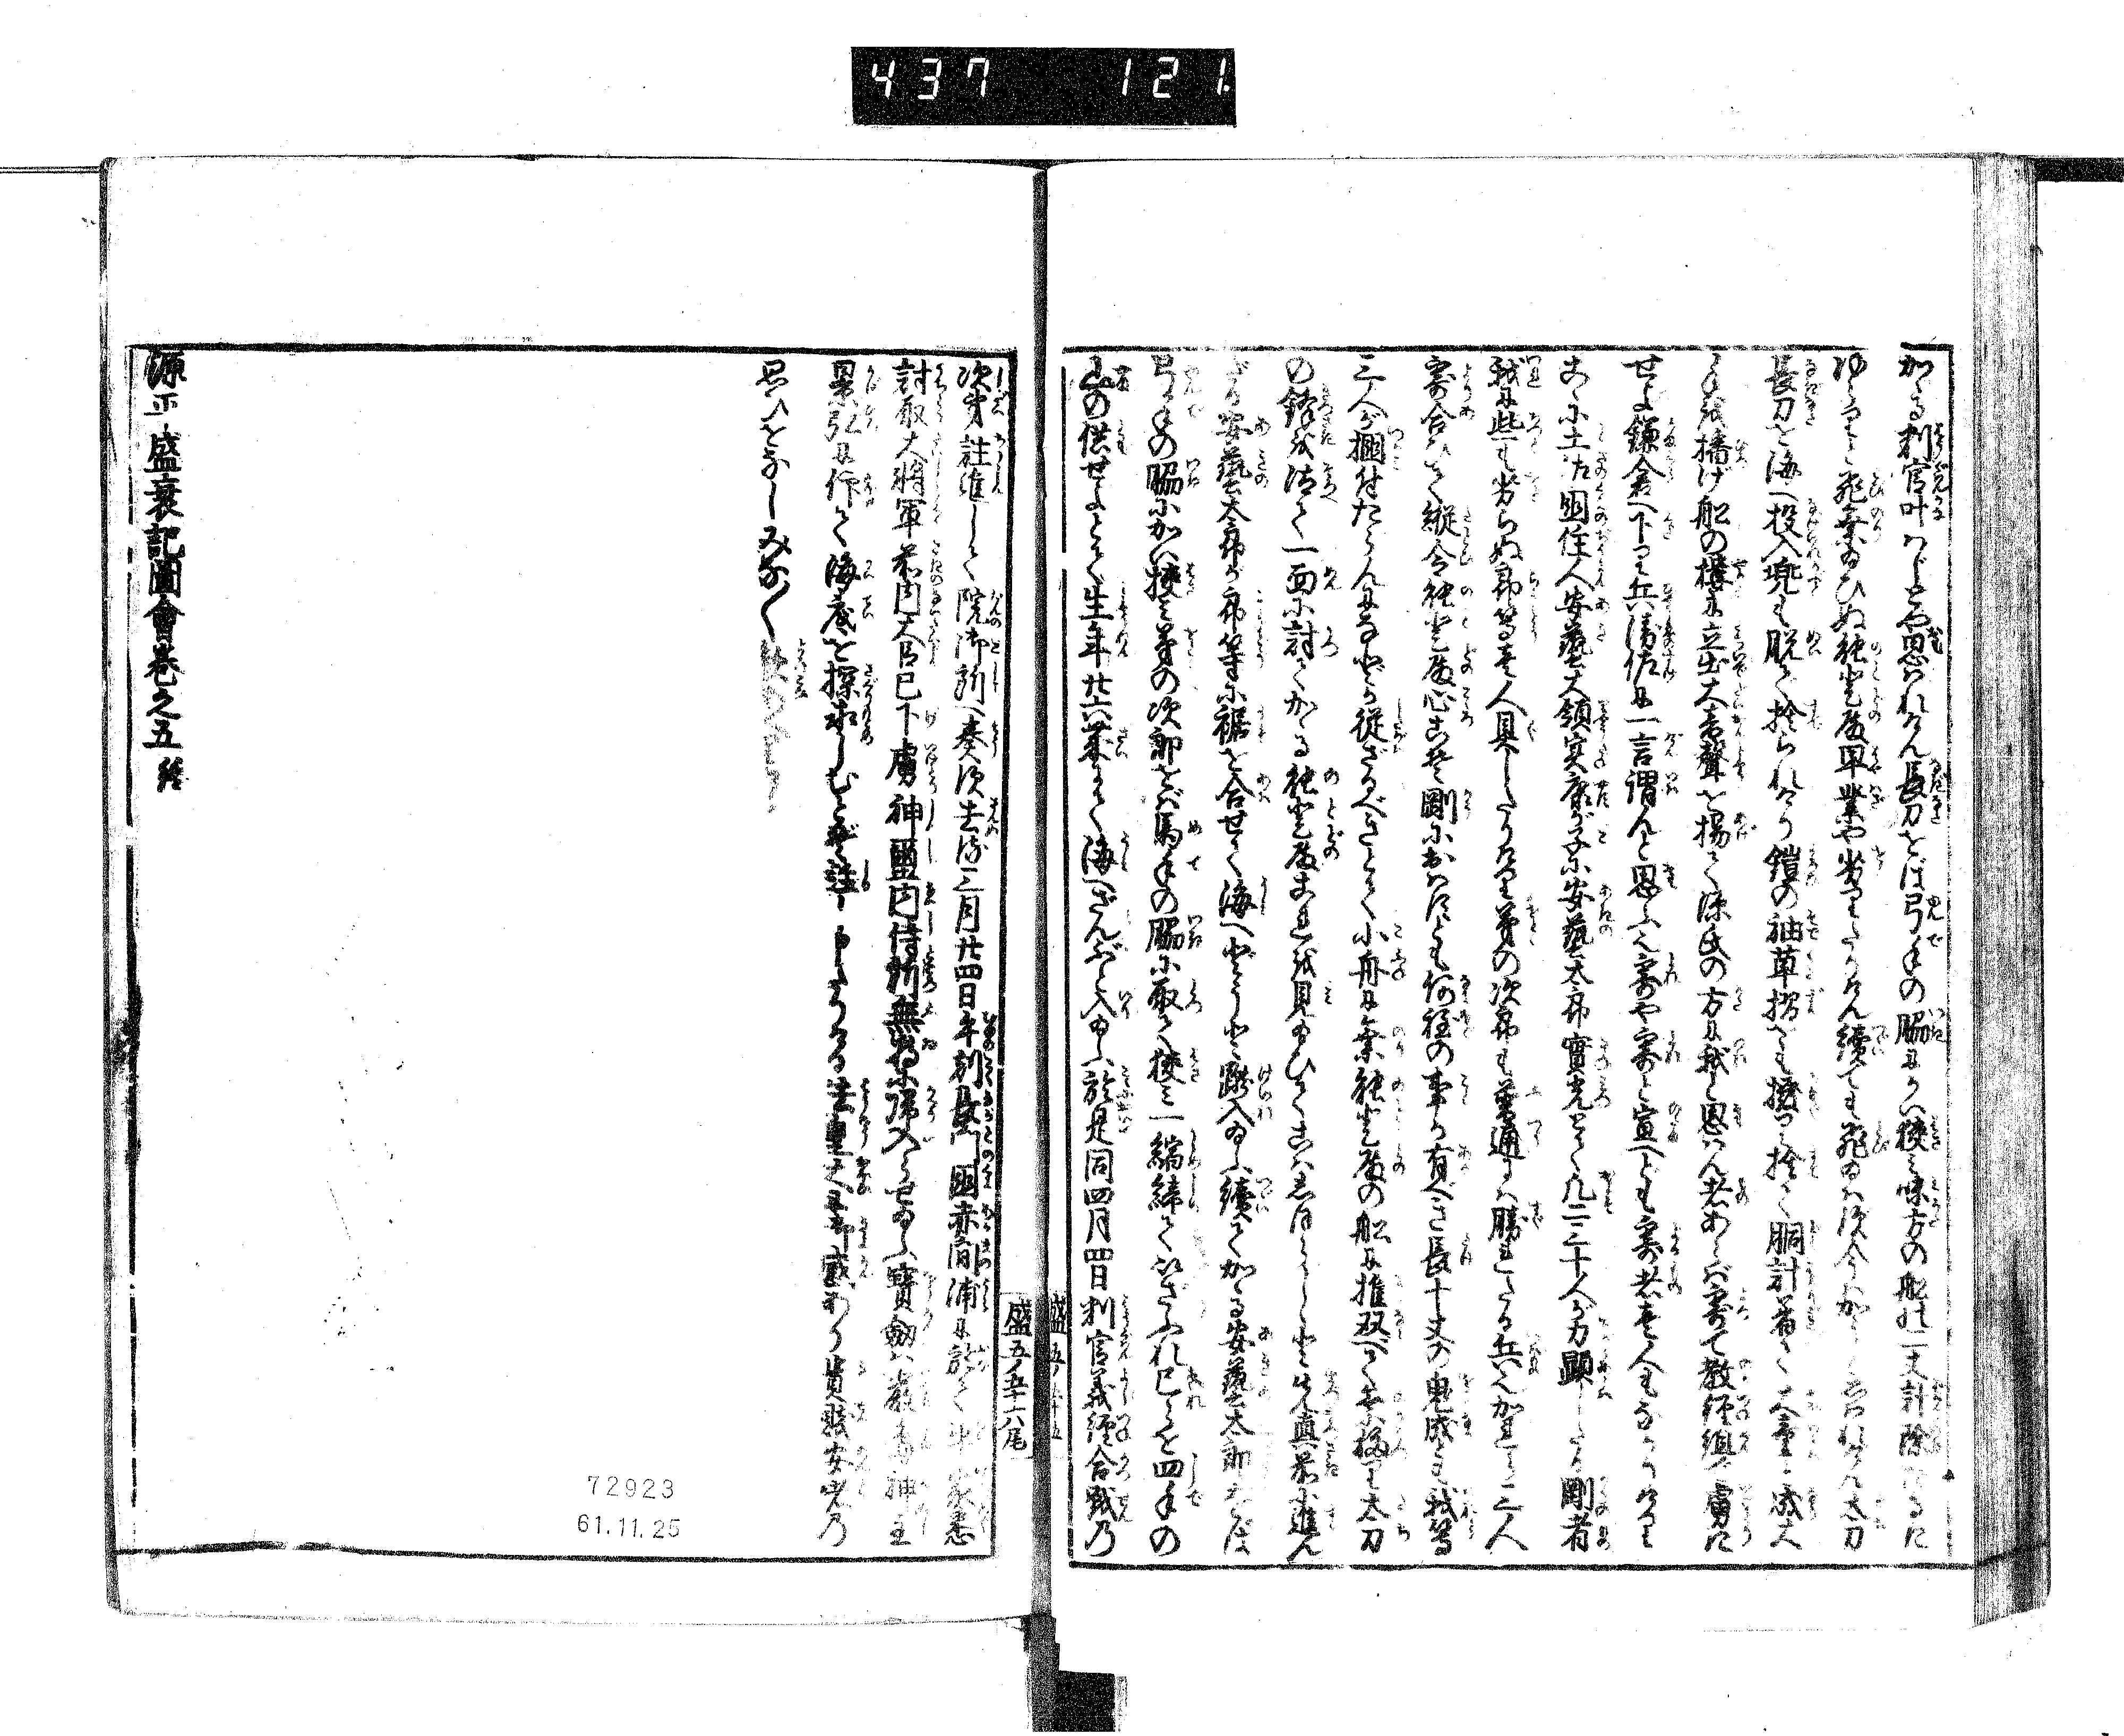 437 121
かゝる判官叶はじとや思はれけん長刀をば弓手の脇にかい挟み味方の船の二丈計隔たるに
ゆらりと飛乗給ひぬ能登殿早業や劣りたりけん続ても飛給はず今はかうと思はれけん太刀
長刀を海へ投入兜も脱で捨られけり鎧の袖草摺をも
船の櫓に立出大音聲を揚て源氏の方に我と思はん者あらば寄て教経組で虜に
せよ鎌倉へ下り兵衛佐に一言謂んと思ふぞ寄や寄と宣へども寄者壱人もなかりけり
こゝに土佐国住人安藝大領実康が子に安藝太郎實光とて凡二三十人が力顕したる剛者
我に些も劣らぬ郎等壱人具したりけり弟の次郎も普通には勝れたる兵なり三人
寄合ひて縦令能登殿心こそ剛におはすとも何程の事か有べき長十丈の鬼成とも我等
三人が掴付たらんになどか従ざるべきとて小舟に乗能登殿の船に推双べて太刀
の鋒を一面に討てかゝる能登殿これを見給ひて真前に進ん
だる安藝太郎が郎等に裾を合せて海へどうと蹴入給ふ續てかゝる安藝太郎をば
弓手の脇にかい挟み弟の次郎をば馬手の脇に取て挟み一縮緯ていざうれ己らを四手の
山の供せよとて生年廿六歳にて海へざんぶと入給ふ於是同四月四日判官義経合戦乃
盛五ノ五十五
盛五ノ五十六尾
次第註進して院御所へ奏す去る三月廿四日卯刻長門国赤間浦に於て平家悉
討取大将軍前内大臣已下虜神璽内侍所無故帰入らせ給ふ寶劔は厳島神主
景弘に仰て海底を探求しむとぞ註し申たりける法皇大に御感あり貴賤安堵乃
思ひをなしみな〱
源平盛衰記圖會巻之五 終
72923
61.11.25